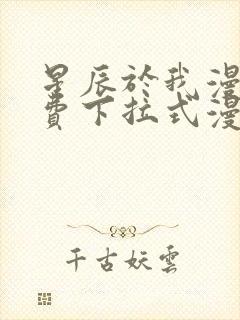 星辰於我漫
費下拉式漫
千古妖雲